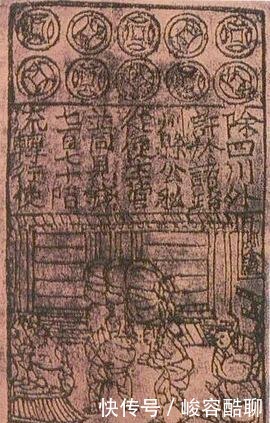 除四川外
許於諸路
州縣公私
從便主管
並同見錢
七百七十陌
流轉行使
快传号／峻容酷聊